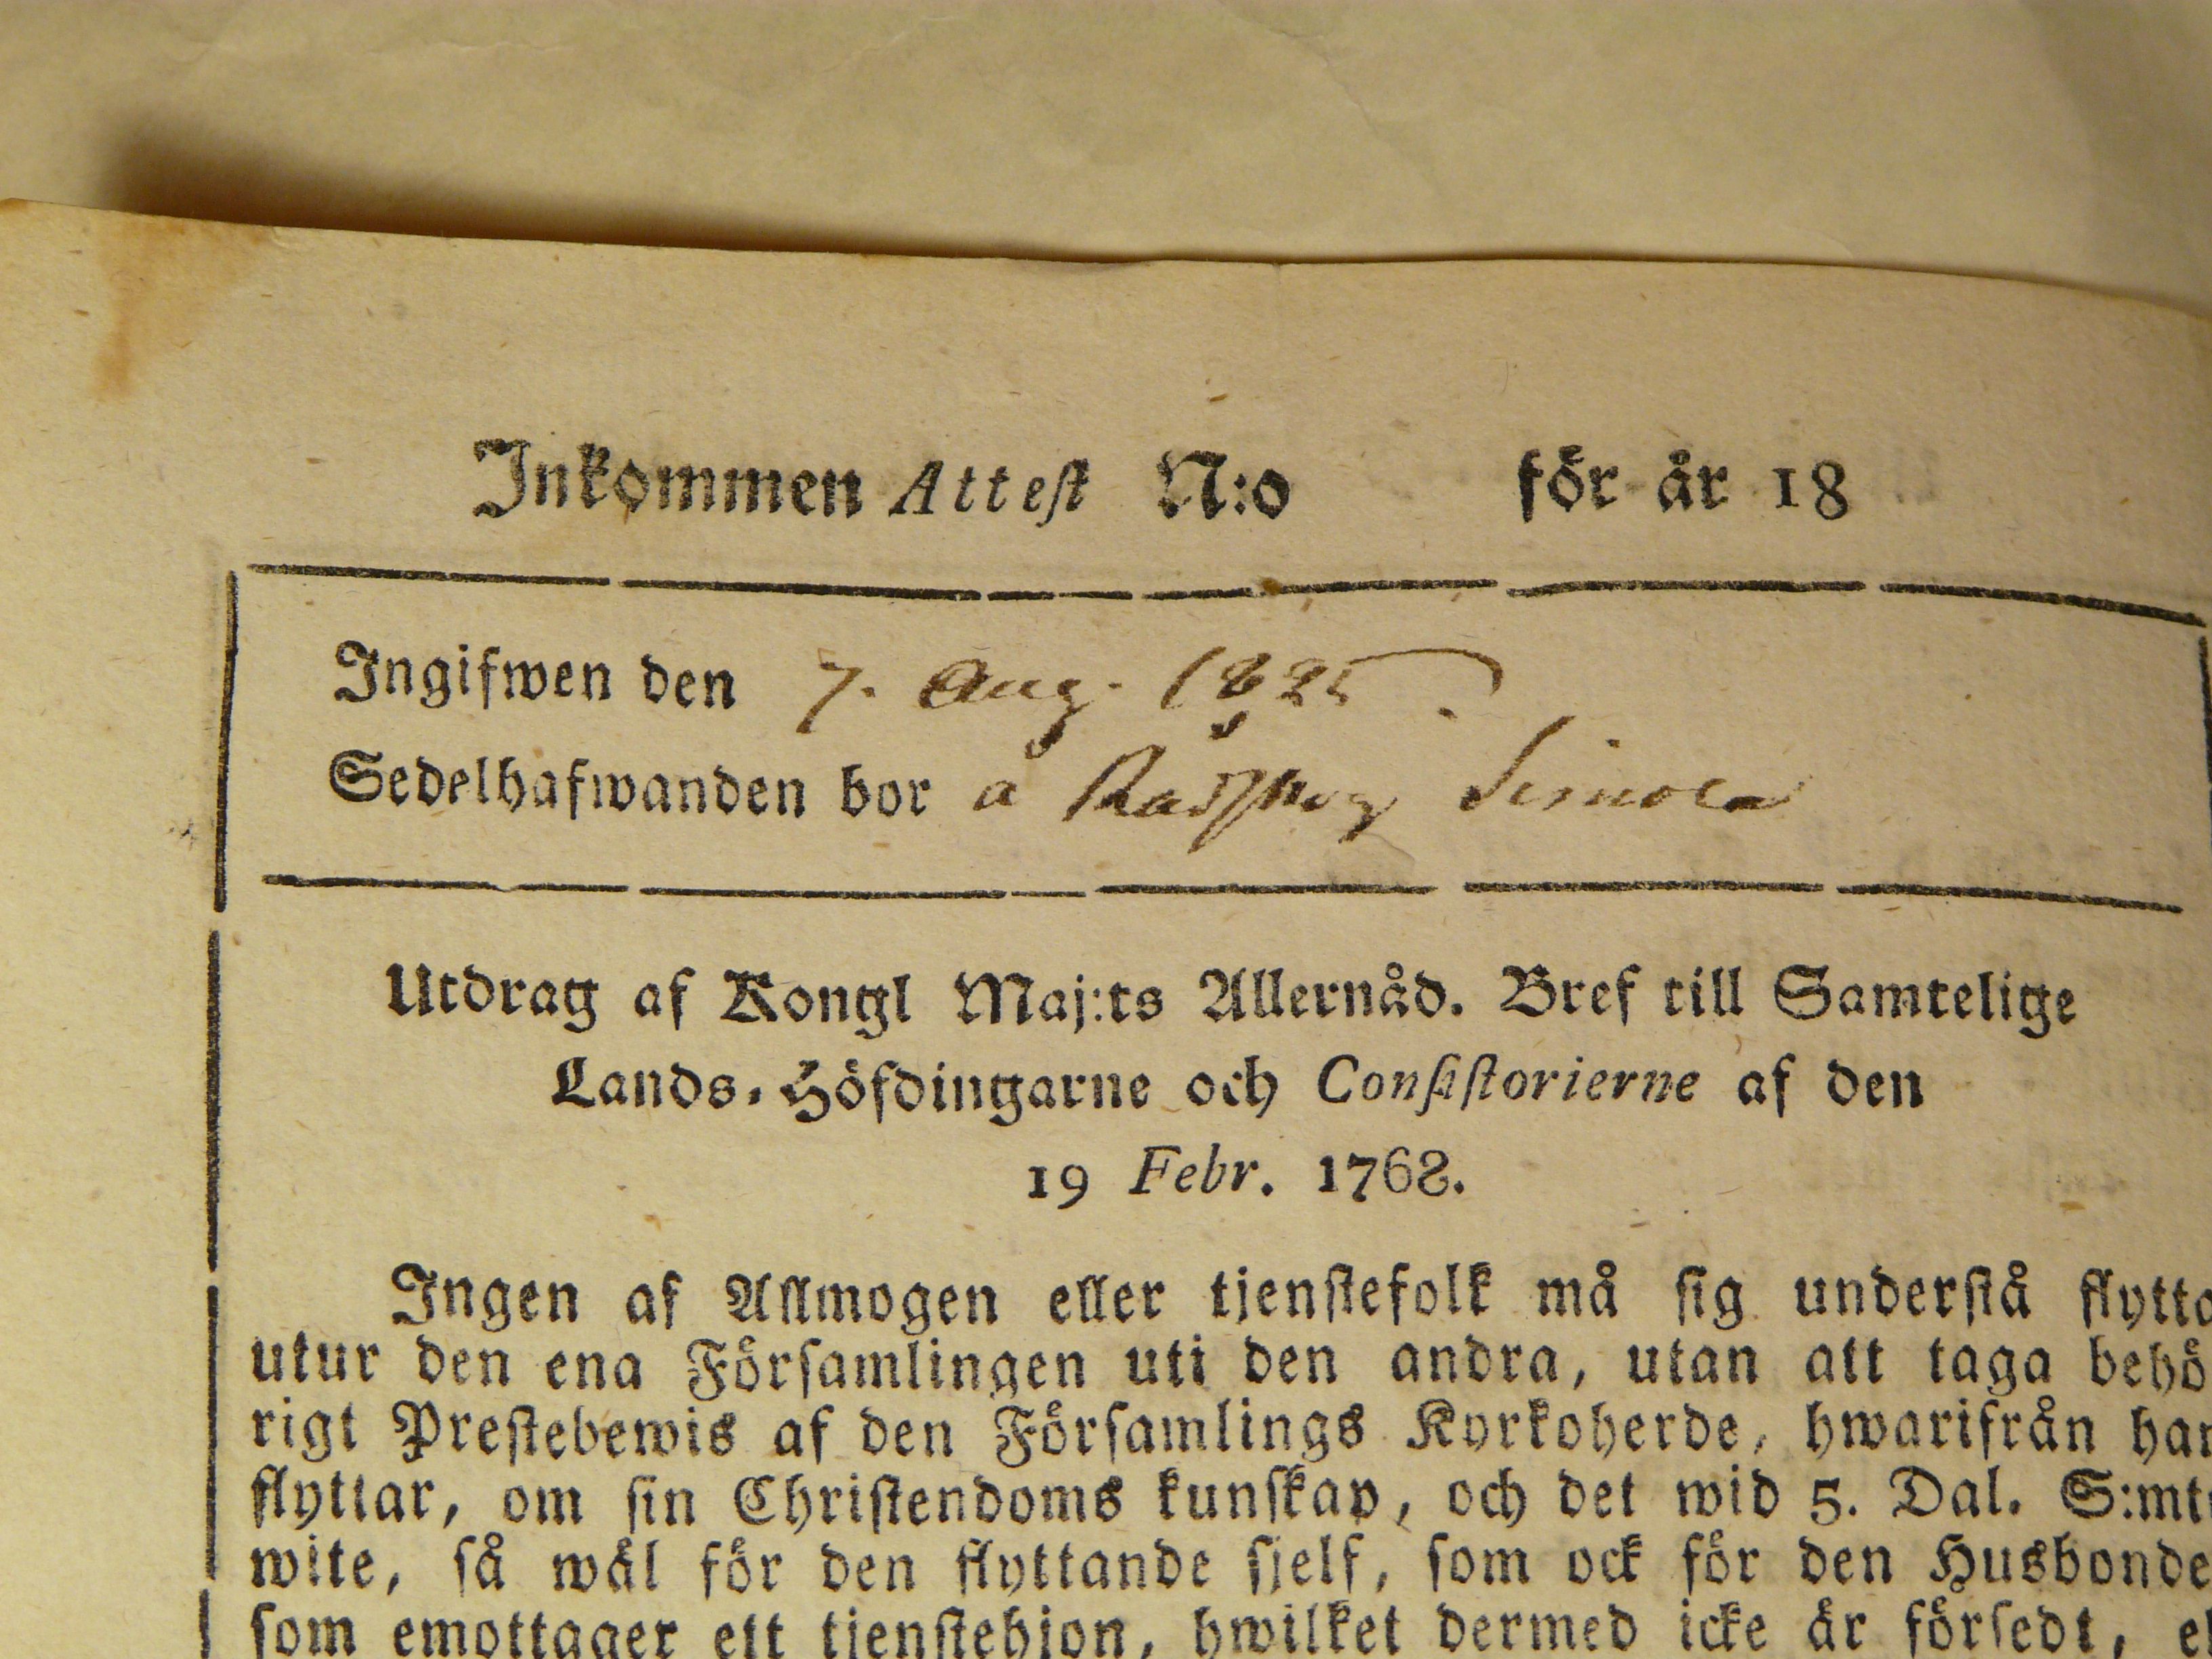 Inkommen Attest N:o för år 18
Ingifwen den 7. Aug. 1825.
Sedelhafwanden bor å Simola
Utdrag af Kongl Maj:ts Allernåd. Bref till Samtelige
Lands-Höfdingarne och Consistorierne af den
19 Febr. 1768.
Ingen af Allmogen eller tjenstefolk må sig understå flytta
utur den ena Församlingen uti den andra, utan att taga behö
rigt Prestebewis af den Församlings Kyrkoherde, hwarifrån han
flyttar, om sin Christendoms kunskap, och det wid 5. Dal. S:mts
wite, så wäl för den flyttande sjelf, som ock för den Husbonde
som emottager ett tjenstehjon, hwilket dermed icke är försedt,